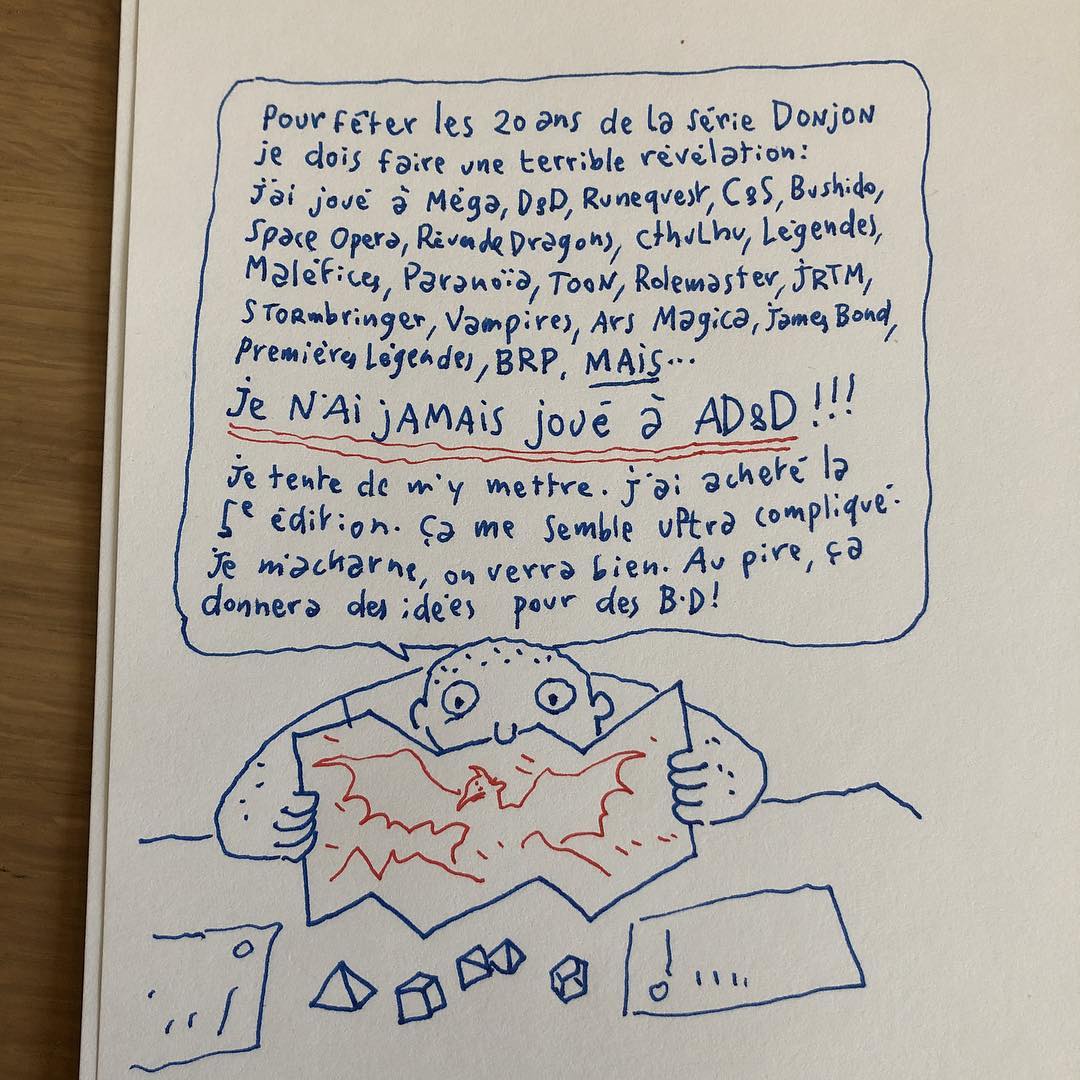 Pour fêter les 20 ans de la série DONJON
je dois faire une terrible révélation:
j'ai joué à Méga, D&D, Runequest, C&S, Bushido,
Space Opera, Rêve de Dragons, cthulhu, Légendes,
Maléfices, Paranoïa, TOON, Rolemaster, JRTM,
STORmbringer, Vampires, Ars Magica, James Bond,
Premières Légendes, BRP, MAIS...
Je N'Ai jAMAiS joué à AD&D!!!
je tente de m'y mettre. j'ai acheté la
5e édition. ça me semble ultra compliqué.
Je m'acharne, on verra bien. Au pire, ça
donnera des idées pour des B.D!